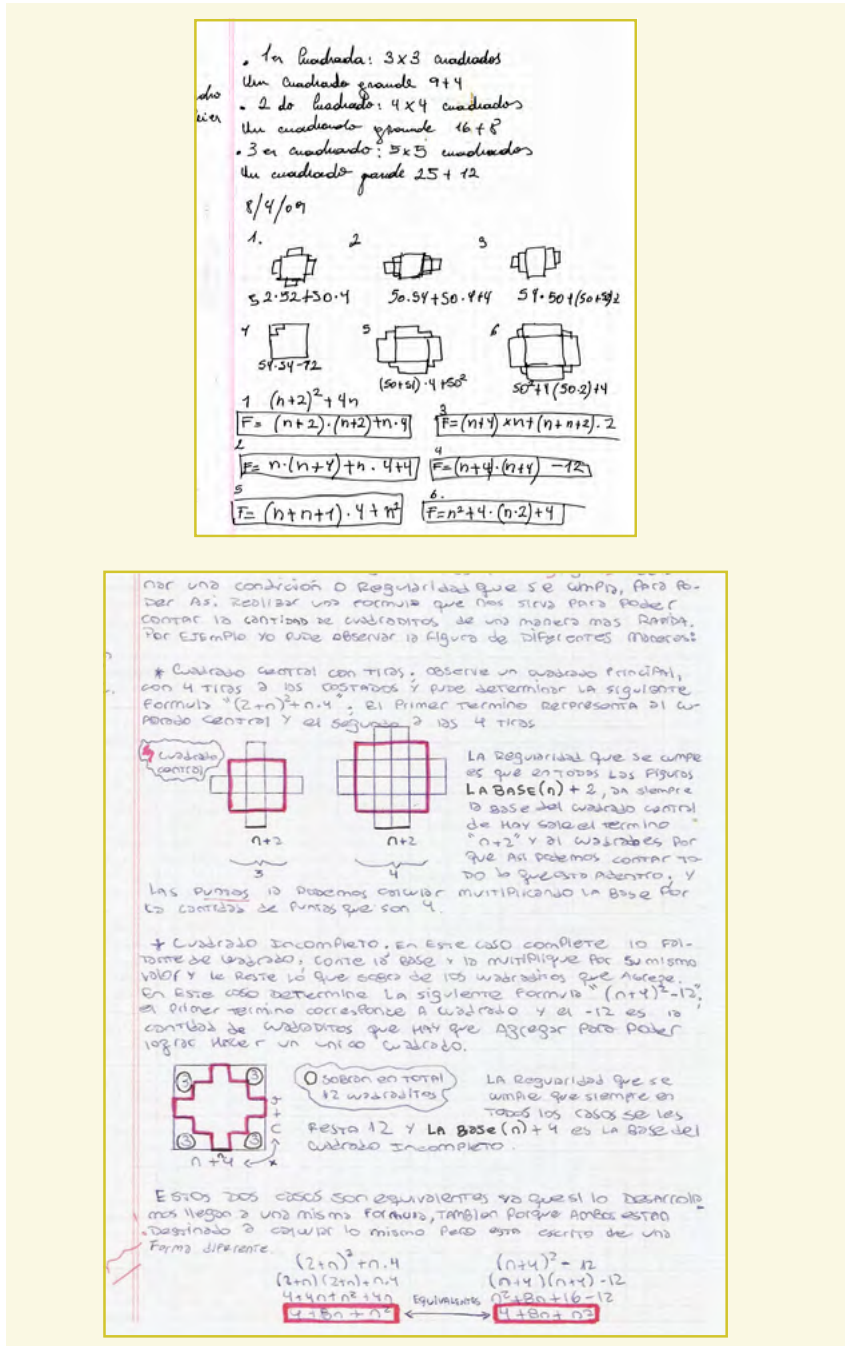 . 1er Cuadrada: 3x3 cuadrados
Un cuadrado grande 9+4
. 2 do Cuadrado: 4x4 cuadrados
Un cuadrado grande 16+8
. 3 er cuadrado: 5x5 cuadrados
Un cuadrado grande 25+12
8/4/09
1. 2 3
52.52+50.4 50.54+50.4+4 54.50+(50+52)2
4 5 6
54.54-12 (50+51).4+50² 50²+4(50.2)+4
1 (n+2)²+4n
F= (n+2).(n+2)+n.4
3
F=(n+4)xn+(n+n+2).2
2
F= n.(n+4)+n.4+4
4
F=(n+4).(n+4) -12
5
F= (n+n+1).4+n²
6.
F=n²+4.(n.2)+4
nar una condición o Regularidad que se cumpla, para po-
der Así. Realizar una formula que nos sirva para poder
contar la cantidad de cuadraditos de una manera mas Rapida.
Por Ejemplo yo pude observar la figura de Diferentes maneras:
* Cuadrado central con tiras. observe un cuadrado Principal,
con 4 tiras a los costados y pude determinar la siguiente
formula "(2+n)²+n.4". El Primer termino Rerpresenta al cu-
adrado central y el segundo a las 4 tiras
Cuadrado
central
La Regularidad que se cumple
es que en todas las figuras
LA BASE(n)+2, da siempre
la base del cuadrado central
de Hay sale el termino
"n+2" y al cuadrado es por
que Asi podemos contar to-
do lo que esta Adentro, y
n+2 n+2
3 4
Las puntas la podemos calcular multiplicando la Base por
la cantidad de puntas que son 4.
* Cuadrado Incompleto. En este caso complete lo fal-
tante de cuadrado, conte la base y la multiplique por su mismo
valor y le Reste lo que sobra de los cuadraditos que Agrege.
En este caso Determine La siguiente formula "(n+4)²-12",
el primer termino corresponde A cuadrado y el -12 es la
cantidad de cuadraditos que HAY que Agregar para poder
lograr Hacer un unico cuadrado.
3 3
3 3
n+4
n+4
O sobran en total
12 cuadraditos
La Regularidad que se
cumple que siempre en
todos los casos se les
Resta 12 y LA Base(n)+4 es la Base del
cuadrado Incompleto.
Estos dos casos son equivalentes ya que si lo Desarrolla
mos llegan a una misma formula, tambien porque Ambos estan
Destinado a calcular lo mismo pero esta escrito de una
Forma diferente.
(2+n)²+n.4 (n+4)²-12
(2+n)(2+n)+n.4 (n+4)(n+4)-12
4+4n+n²+4n n²+8n+16-12
4+8n+n² Equivalentes 4+8n+n²